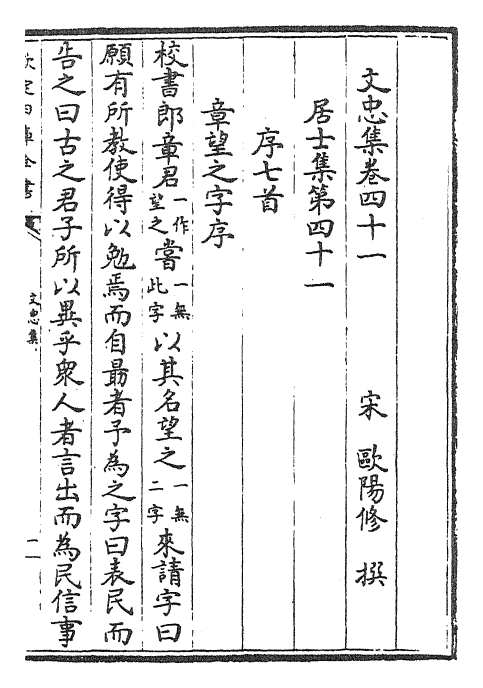 文忠集卷四十一
宋 歐陽修 撰
居士集第四十一
序七首
章望之字序
校書郎章君一作望之嘗一無此字以其名望之一無二字來請字曰
願有所教使得以勉焉而自勗者予為之字曰表民而
告之曰古之君子所以異乎衆人者言出而為民信事
欽定四庫全書
文忠集